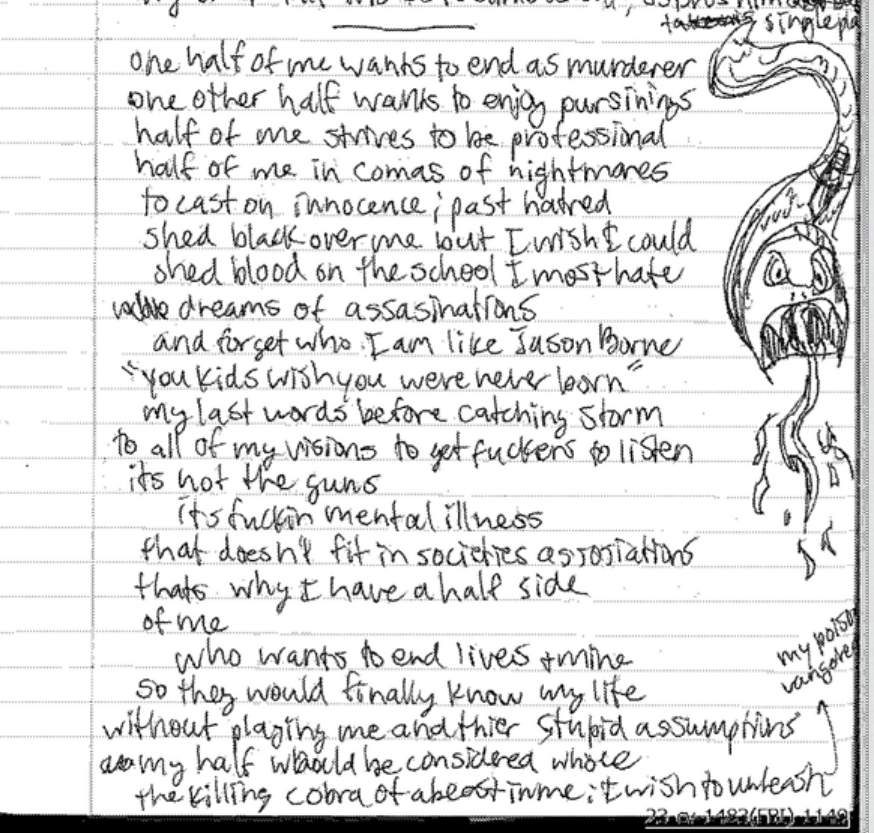 singlepa
one half of me wants to end as murderer
one other half wants to enjoy
half of me strives to be professional
half of me in comas of nightmares
to cast on innocence; past hatred
shed black over me but I wish I could
shed blood on the school I most hate
dreams of assasinations
and forget who I am like Jason Borne
"you kids wish you were never born"
my last words before catching storm
to all of my visions to get fuckers to listen
its not the guns
its fuckin mental illness
that doesn't fit in societies assosiations
thats why I have a half side
of me
who wants to end lives + mine
so they would finally know my life
without plaging me and thier stupid assumptions
my half would be considered whole
the killing cobra of a beast in me; I wish to unleash
my poiso
23 cv 1483(FRJ) 1149